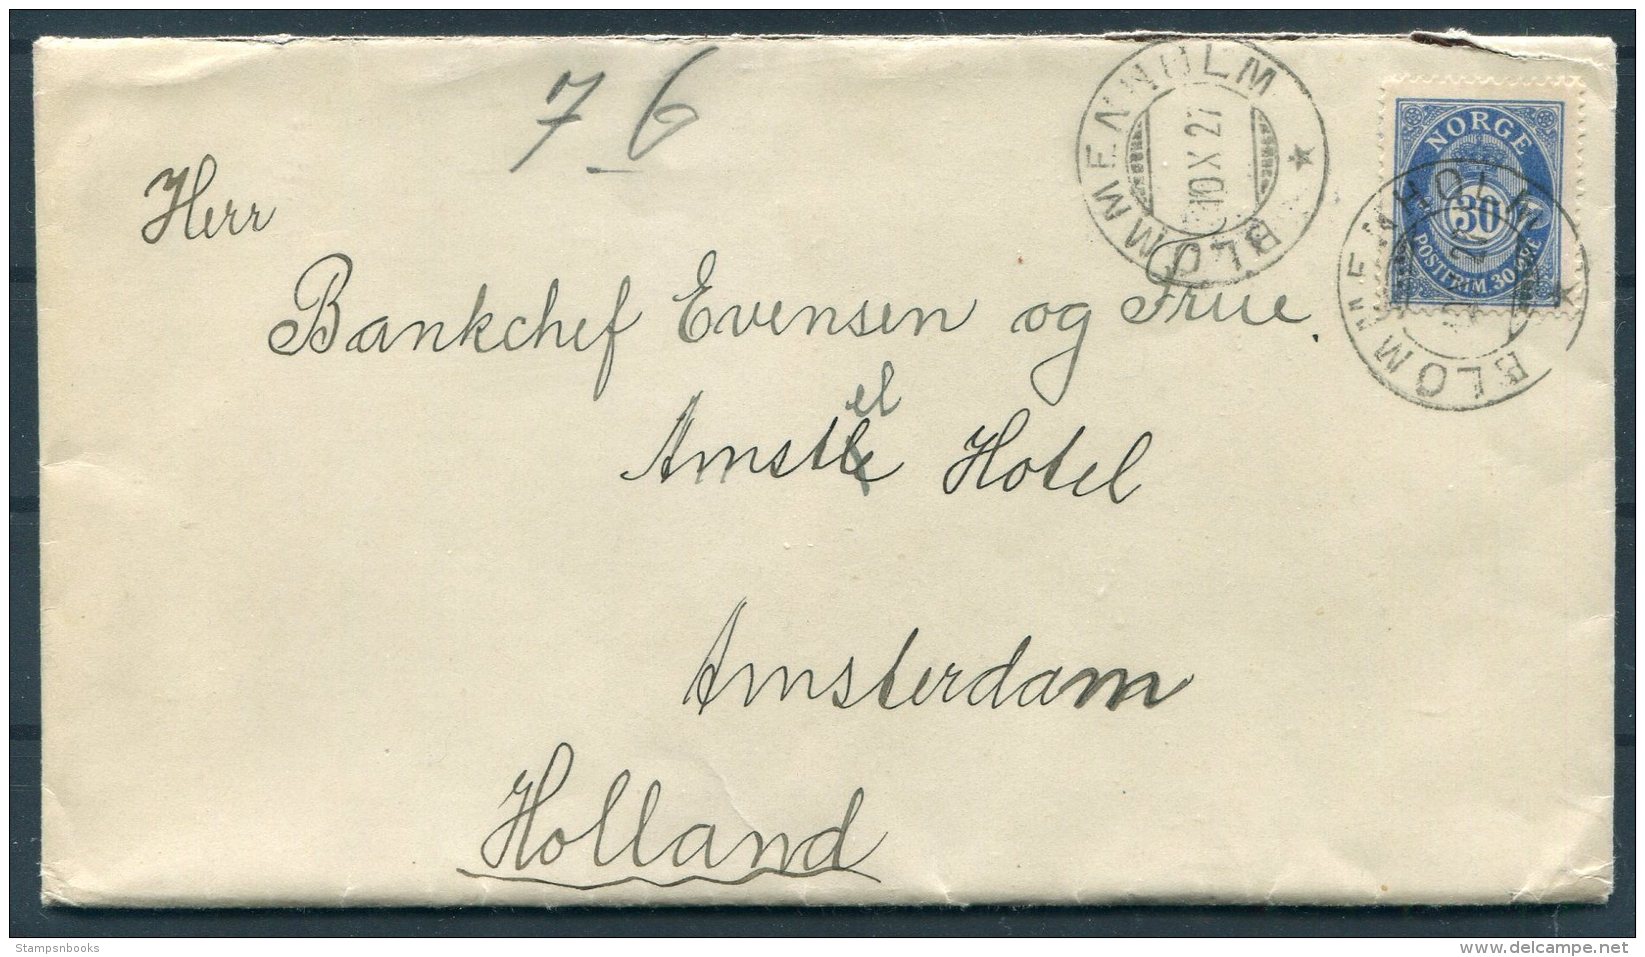 7 6
BLOMMENHOLM
10 X 27
NORGE
30
POSTFRIM 30 ØRE
BLOMMENHOLM
Herr
Bankchef Evensen og Frue.
el
Amstle Hotel
Amsterdam
Holland
Stampsnbooks
http://www.delcampe.net